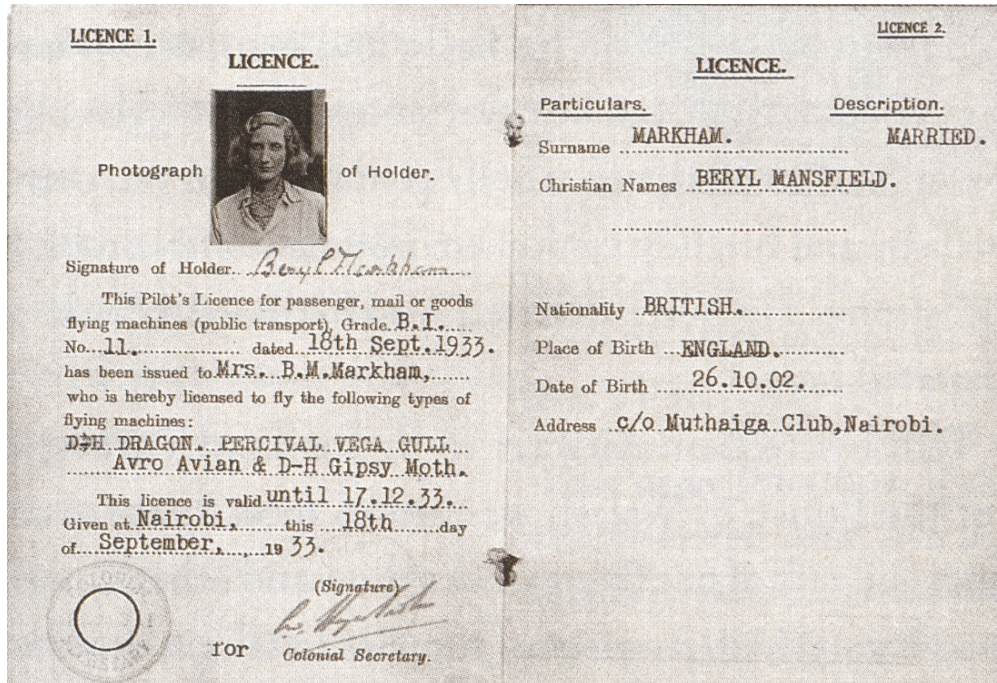 LICENCE 1.
LICENCE.
Photograph of Holder.
Signature of Holder. Beryl Markham
This Pilot's Licence for passenger, mail or goods
flying machines (public transport), Grade B.I.
No. 11. dated 18th Sept.1933.
has been issued to Mrs. B.M.Markham,
who is hereby licensed to fly the following types of
flying machines:
D-H DRAGON. PERCIVAL VEGA GULL
Avro Avian & D-H Gipsy Moth.
This licence is valid until 17.12.33.
Given at Nairobi, this 18th day
of September, 1933.
(Signature)
for Colonial Secretary.
LICENCE 2.
LICENCE.
Particulars. Description.
Surname MARKHAM. MARRIED.
Christian Names BERYL MANSFIELD.
Nationality BRITISH.
Place of Birth ENGLAND.
Date of Birth 26.10.02.
Address c/o Muthaiga Club,Nairobi.